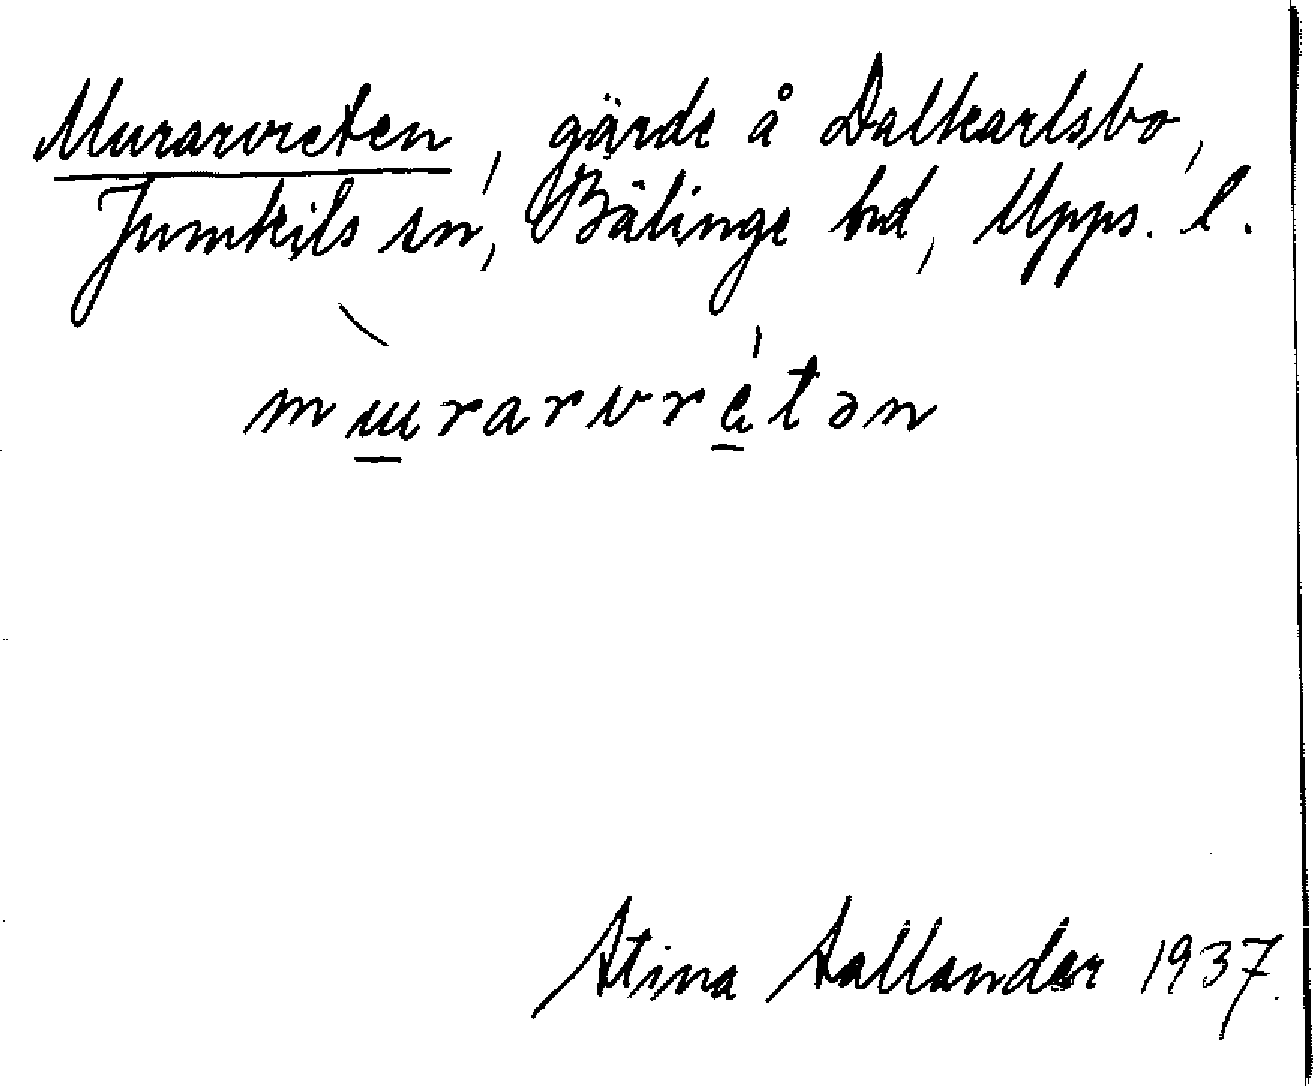 Murarvreten, gärde å Dalkarlsbo,
Jumkils sn, Bälinge hd, Upps. l.
mɯrarvretən
Stina Sallander 1937.